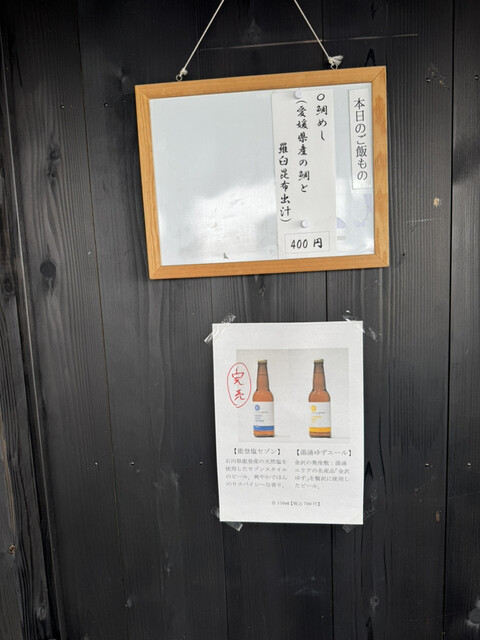 本日のご飯もの
○鯛めし
(愛媛県産の鯛と
羅臼昆布出汁)
400円
完売
【能登塩セゾン】
石川県能登産の天然塩を
使用したセゾンスタイル
のビール。爽やかでほん
のりスパイシーな香り。
【湯涌ゆずエール】
金沢の奥座敷:湯涌
エリアの名産品「金沢
ゆず」を贅沢に使用し
たビール。